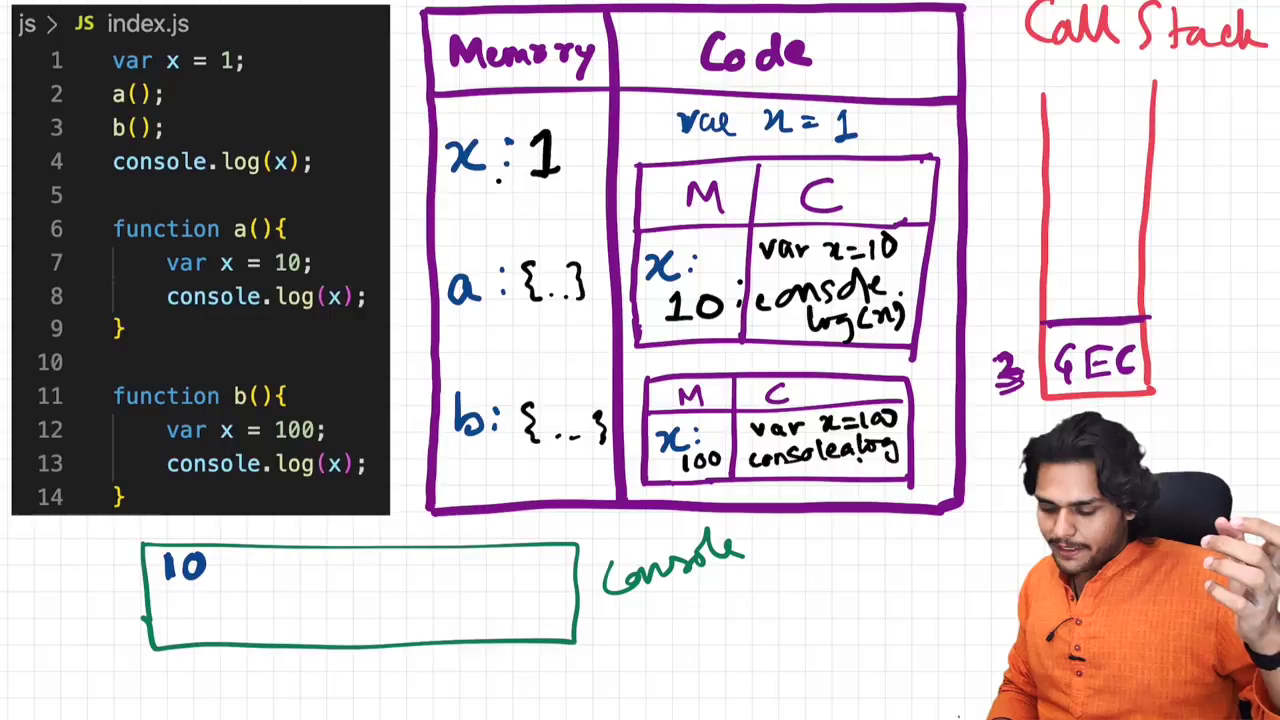 js > JS index.js
1 var x = 1;
2 a();
3 b();
4 console.log(x);
5
6 function a(){
7 var x = 10;
8 console.log(x);
9 }
10
11 function b(){
12 var x = 100;
13 console.log(x);
14 }
Memory Code
var x = 1
x : 1
M C
x: 10 :
var x=10
console.
log(x)
a : {..}
b: {...}
M C
x: 100
var x=100
console.log
Call Stack
GEC
10
Console